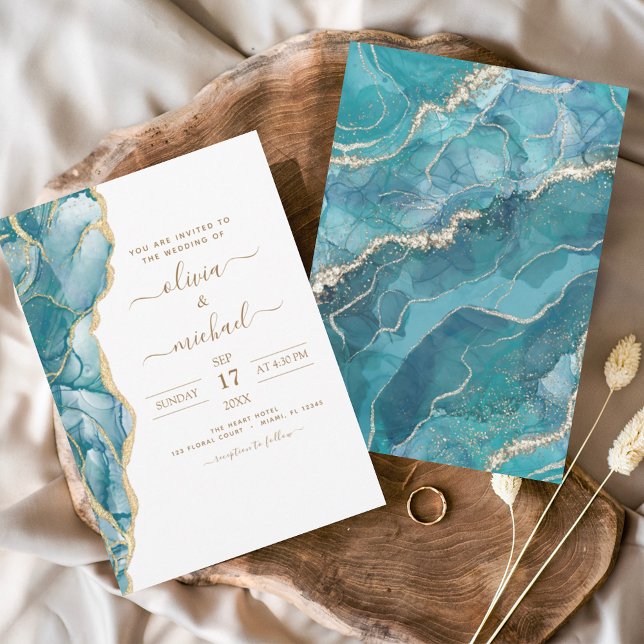 YOU ARE INVITED TO
THE WEDDING OF
olivia
&
michael
SEP
SUNDAY 17 AT 4:30 PM
20XX
THE HEART HOTEL
123 FLORAL COURT • MIAMI, FL 12345
reception to follow